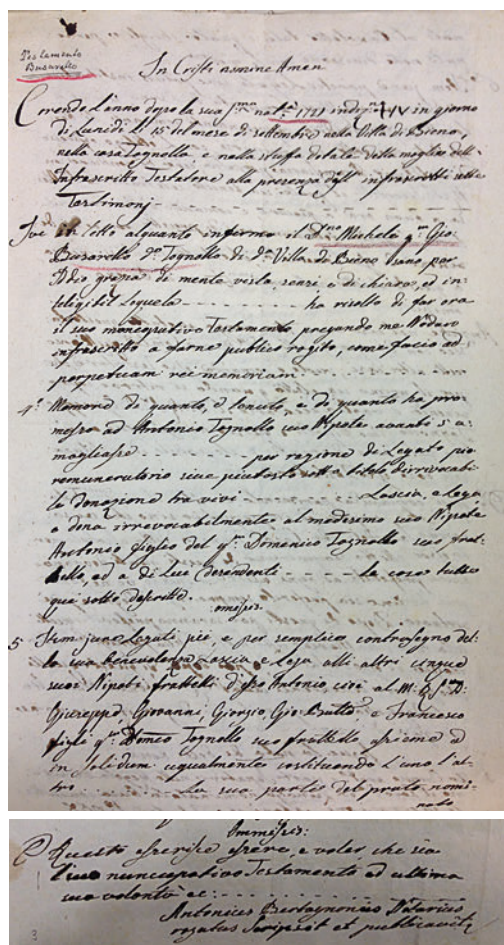 Testamento
Busarello
In Cristi nomine Amen
Corendo l'anno dopo la sua
di Lunidi li 15 del mese di settembre nella Villa di Bieno,
nella casa Tognolla e nella stuffa dotale della moglie dell'
Infrascritto Testatore alla presenza degl' infrascritti sette
Testimonj
in letto alquanto infermo il Michele Gio
Busarello Tognollo di Villa di Bieno sano per
Iddio grazia di mente vista, sensi e di chiara, ed in-
telegibil loquela ha risolto di far ora
il suo noncupativo Testamento pregando me Nodaro
infrascritto a farne publico rogito, come facio ad
perpetuam rei memoriam
4.° Memore di quanto, e di quanto ha pro-
messo ad Antonio Tognollo suo Nipote avanti s'a-
mogliasse per ragione di Legato pio
remuneratorio sive piutosto sotto titolo d'irrivocabi-
le donazione tra vivi Lascia, e Lega
e dona irrevocabilmente al medesimo suo Nipote
Antonio figlio del qm Domenico Tognollo suo frat-
tello, ed a di lui descendenti le cose tutte
qui sotto descritte.
omissis
5 Item jure Legati pii, e per semplice contrasegno del-
la sua benevolenza Lascia e Lega alli altri cinque
suoi Nipoti frattelli d'esso Antonio, cioè al M. R. D:
Giuseppe, Giovanni, Giorgio, Gio Batta e Francesco
figli qm Domco Tognollo suo frattello assieme ed
in solidum ugualmente sostituendo l'uno l'al-
tro La sua parte del prato nomi-
nato
Ommissis:
Questo essere, e voler che sia
il suo nuncupativo Testamento ed ultima
sua volontà ec:
Antonius Bertagnonius Notarius
rogatus scripsit et publicavit
3